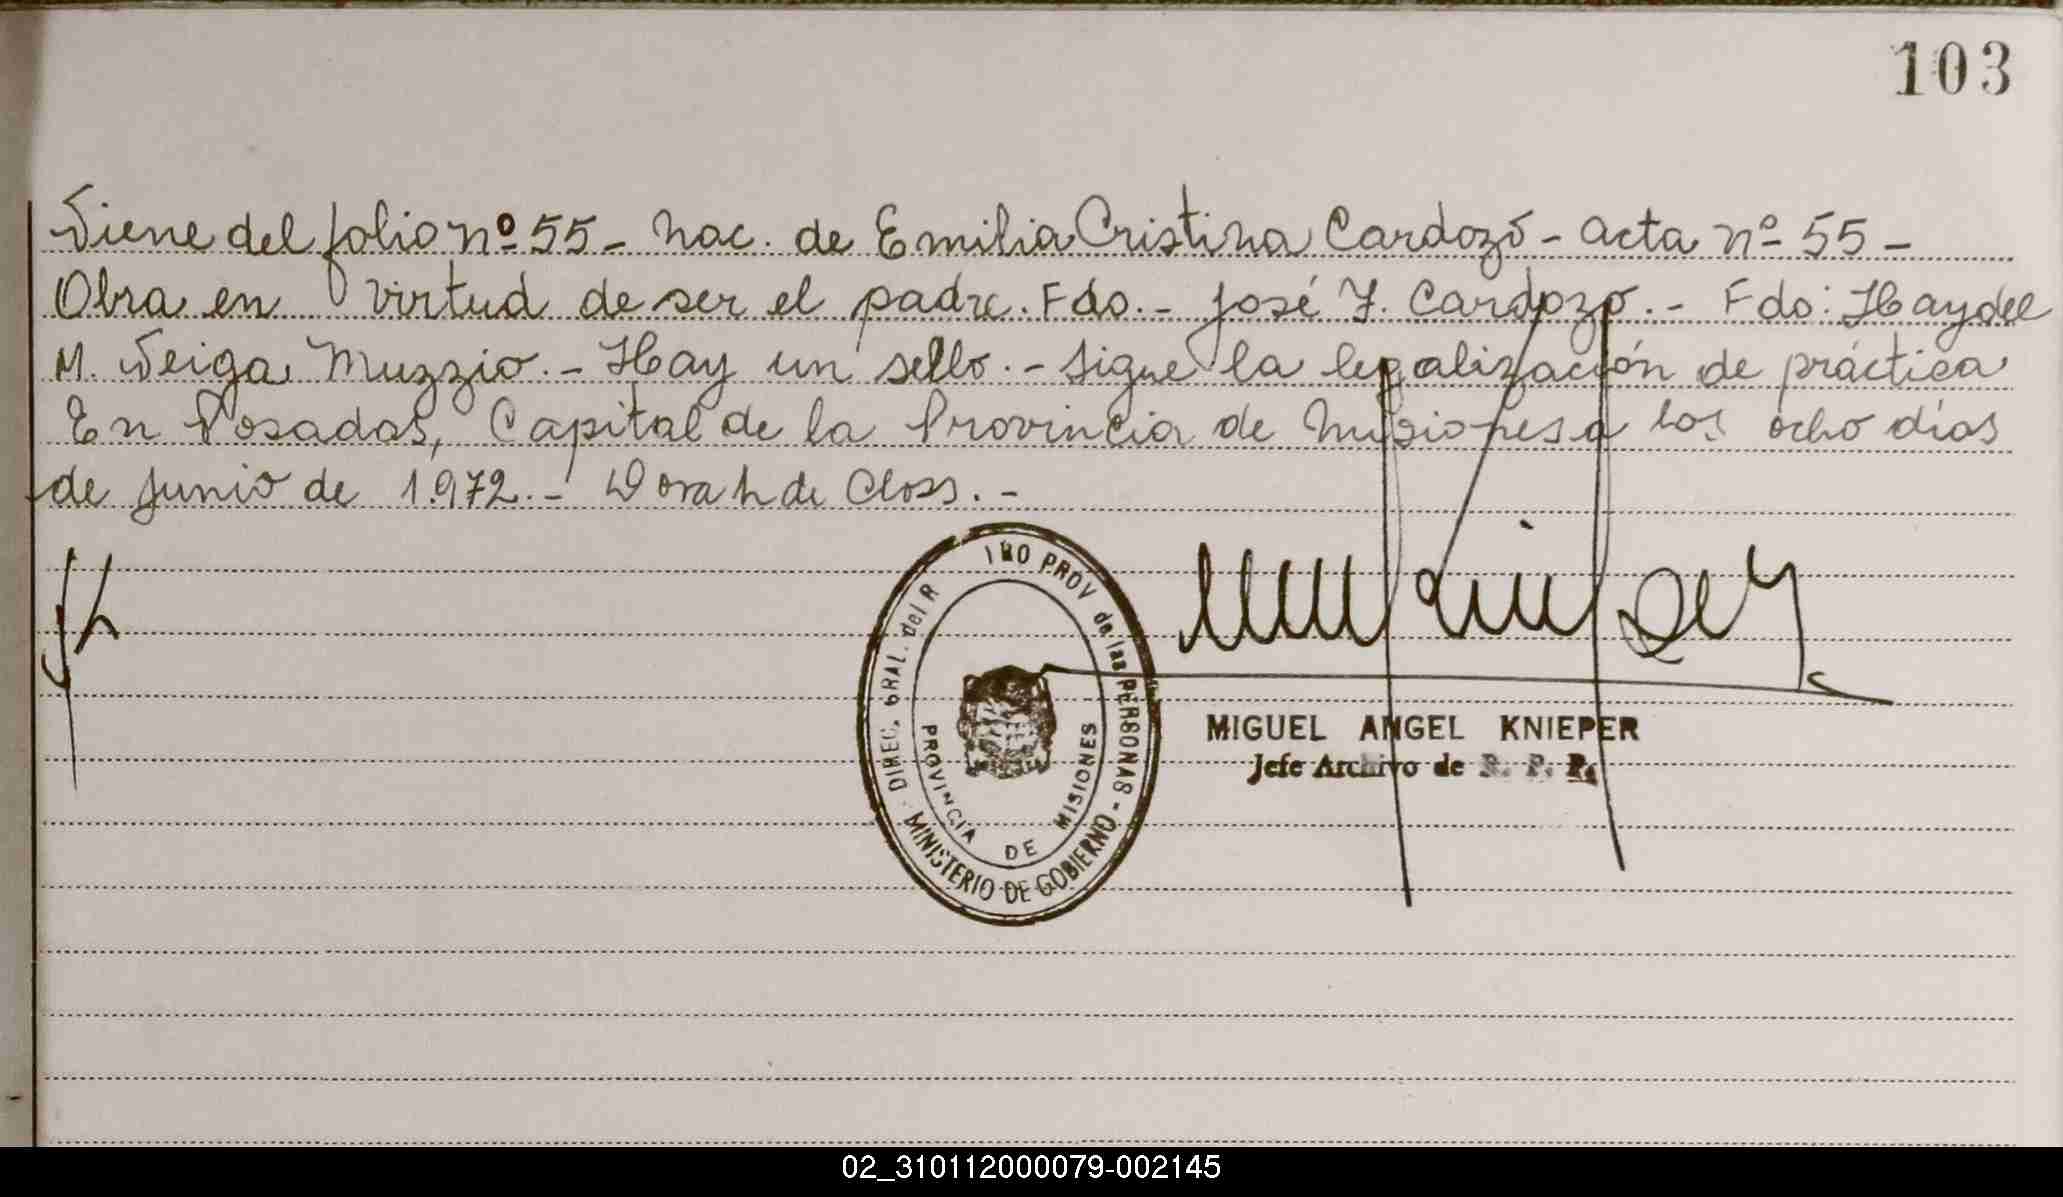 103
Viene del folio nº 55 - Nac. de Emilia Cristina Cardozo - acta nº 55 -
Obra en virtud de ser el padre. Fdo. - José F. Cardozo. - Fdo: Haydel
M. Veiga Muzzio. - Hay un sello. - Sigue la legalización de práctica
En Posadas, Capital de la Provincia de Misiones a los ocho días
de junio de 1.972. - Dora h de Closs. -
DIREC. GRAL. del R PROV de las PERSONAS
MINISTERIO DE GOBIERNO
PROVINCIA DE MISIONES
MIGUEL ANGEL KNIEPER
Jefe Archivo de R. P. P.
02_310112000079-002145